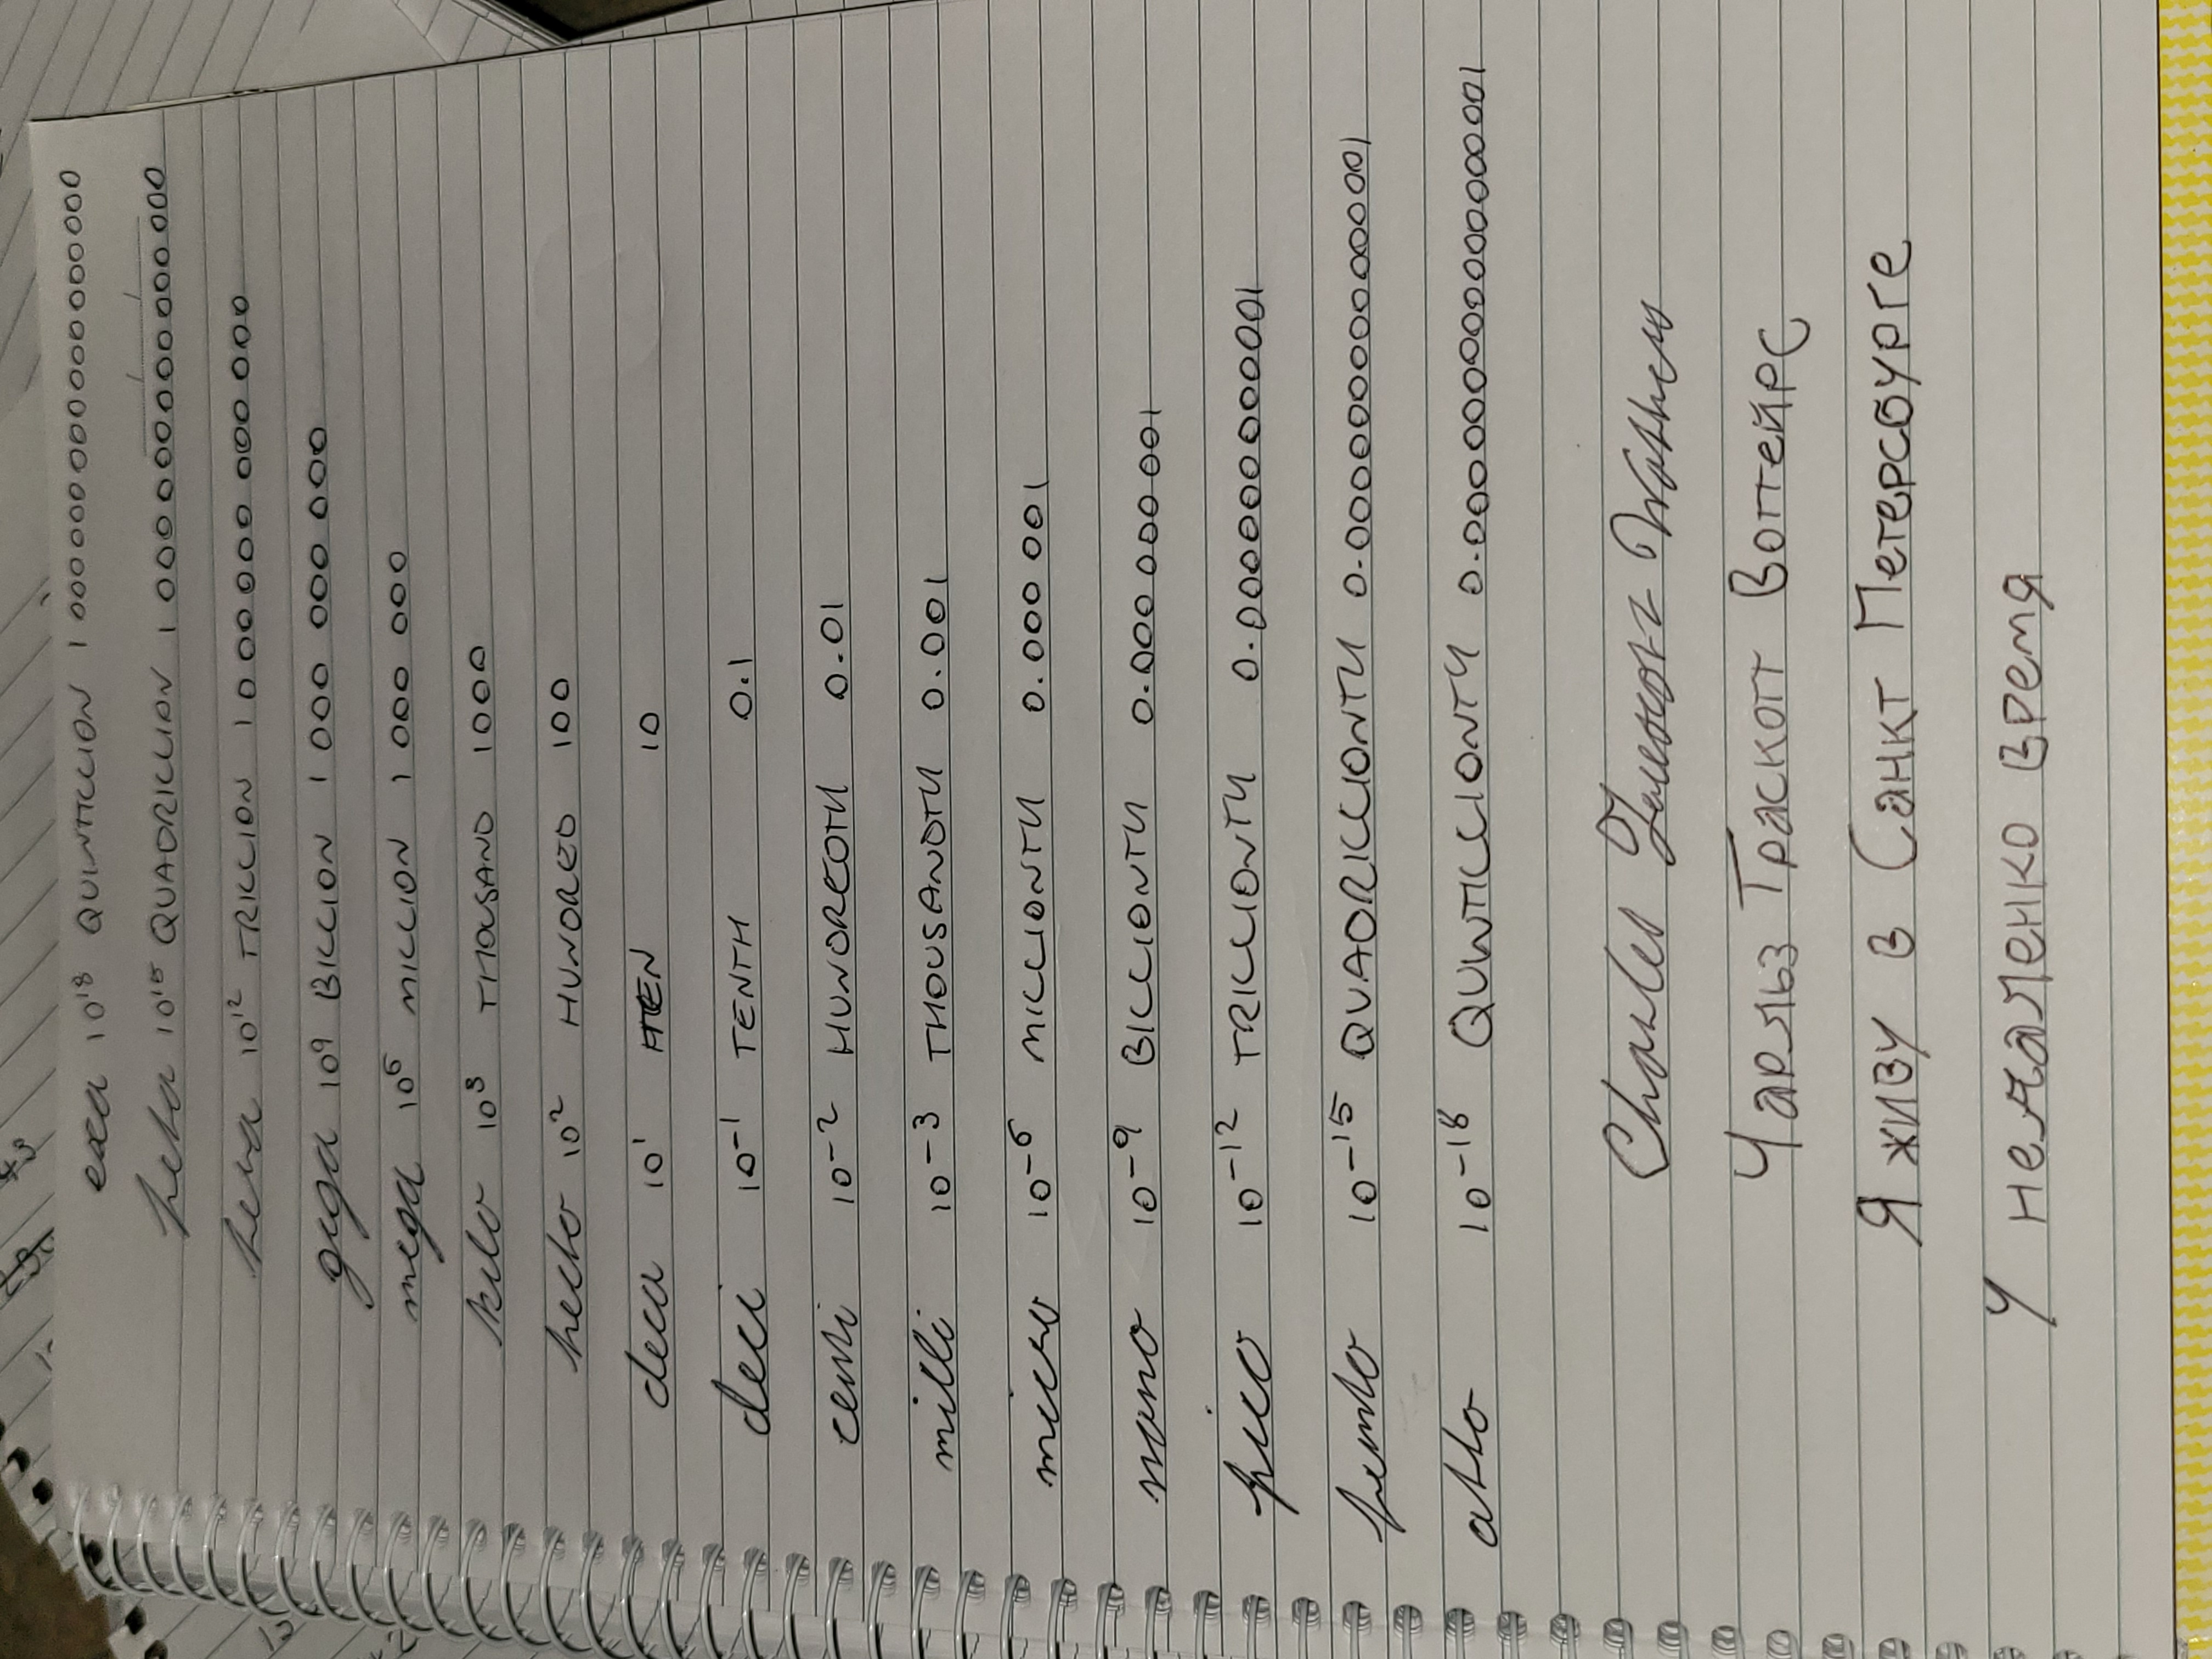 exa 10¹⁸ QUINTILLION 1 000 000 000 000 000 000
peta 10¹⁵ QUADRILLION 1 000 000 000 000 000
tera 10¹² TRILLION 1 000 000 000 000
giga 10⁹ BILLION 1 000 000 000
mega 10⁶ MILLION 1 000 000
kilo 10³ THOUSAND 1000
hecto 10² HUNDRED 100
deca 10¹ TEN 10
deci 10⁻¹ TENTH 0.1
centi 10⁻² HUNDREDTH 0.01
milli 10⁻³ THOUSANDTH 0.001
micro 10⁻⁶ MILLIONTH 0.000 001
nano 10⁻⁹ BILLIONTH 0.000 000 001
pico 10⁻¹² TRILLIONTH 0.000000000001
femto 10⁻¹⁵ QUADRILLIONTH 0.000000000000001
atto 10⁻¹⁸ QUINTILLIONTH 0.000000000000000001
Charles
Чарльз Траскотт Воттейрс
Я живу в Санкт Петерсбурге
У время